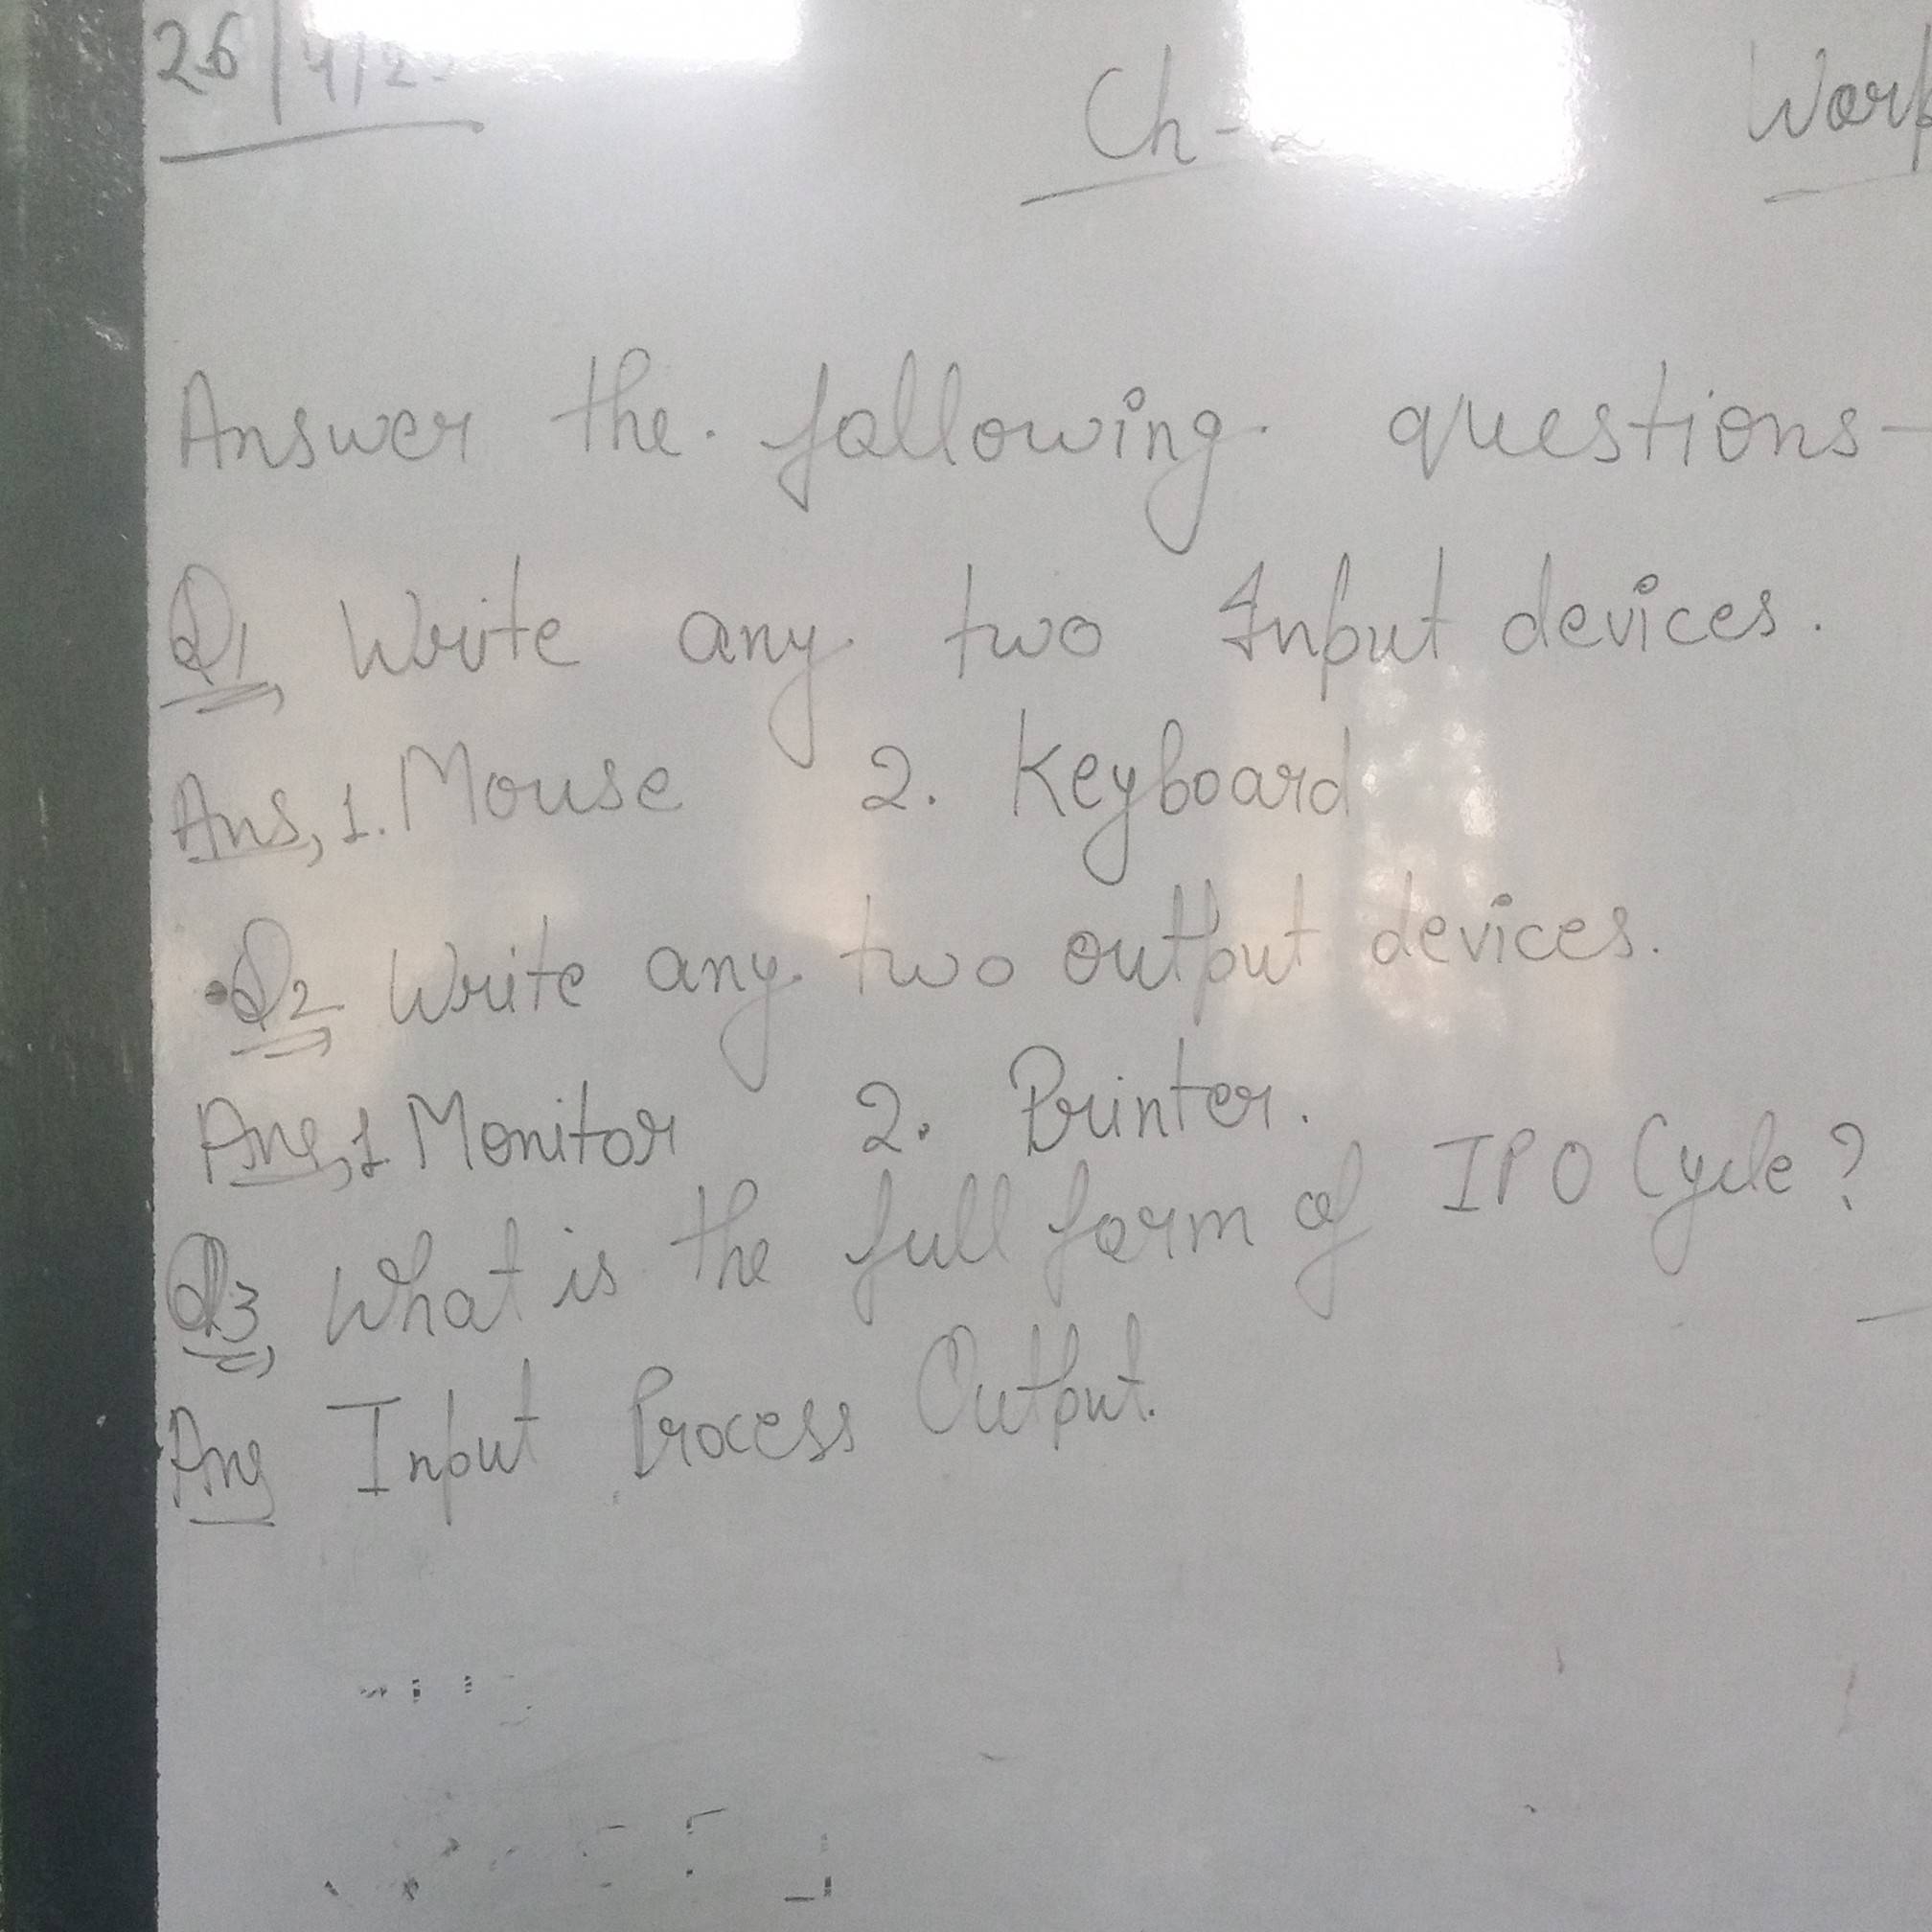 26/4/2
Ch-
Answer the following questions-
Q1, Write any two Input devices.
Ans, 1. Mouse 2. Keyboard
Q2, Write any two output devices.
Ans, 1 Monitor 2. Printer.
Q3, What is the full form of IPO Cycle?
Ans Input Process Output.